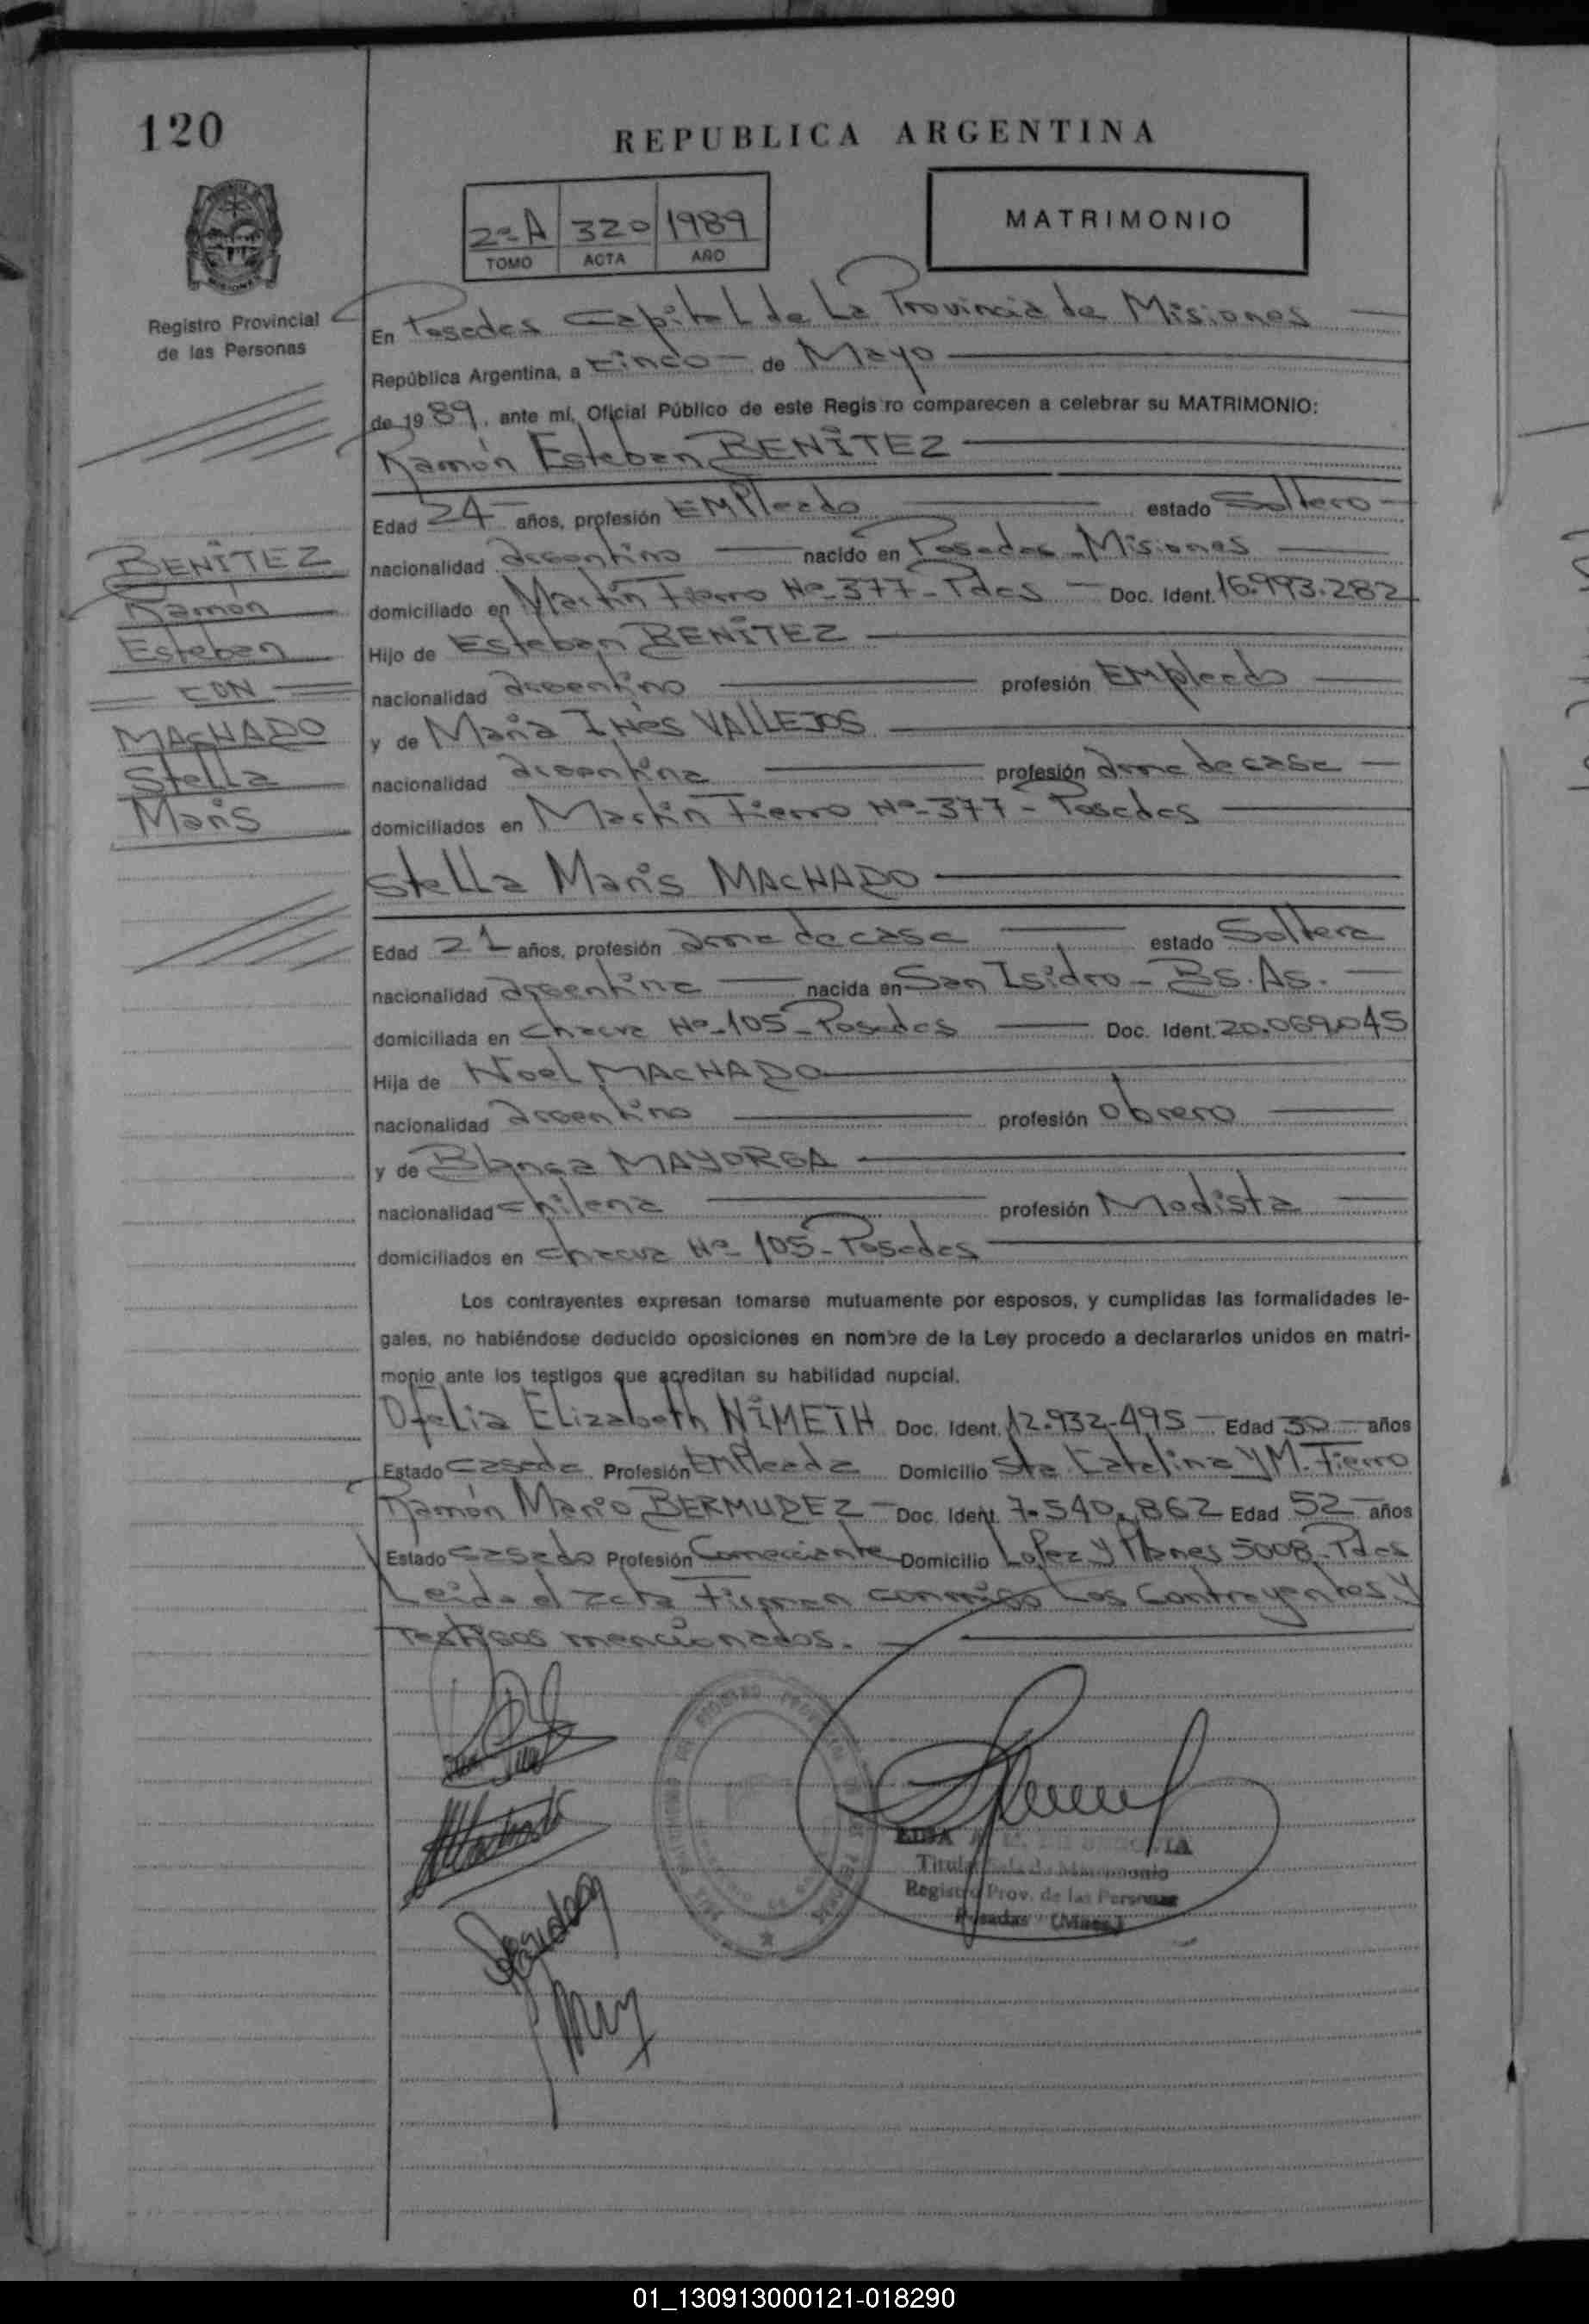 120
REPUBLICA ARGENTINA
2º A 320 1989
TOMO ACTA AÑO
MATRIMONIO
Registro Provincial
de las Personas
En Posadas Capital de La Provincia de Misiones
República Argentina, a cinco de Mayo
de 1989, ante mí, Oficial Público de este Registro comparecen a celebrar su MATRIMONIO:
Ramón Esteban BENÍTEZ
Edad 24 años, profesión EMPleado estado Soltero
nacionalidad argentino nacido en Posadas - Misiones
domiciliado en Martín Fierro Nº 377 - Pdas Doc. Ident. 16.993.282
Hijo de Esteban BENÍTEZ
nacionalidad argentino profesión EMpleado
y de María INés VALLEJOS
nacionalidad argentina profesión ama de casa
domiciliados en Martín Fierro Nº 377 - Posadas
BENÍTEZ
Ramón
Esteban
CON
MACHADO
Stella
Maris
Stella Maris MACHADO
Edad 21 años, profesión ama de casa estado Soltera
nacionalidad argentina nacida en San Isidro - Bs. As.
domiciliada en Chacra Nº 105 - Posadas Doc. Ident. 20.069.045
Hija de Noel MACHADO
nacionalidad argentino profesión obrero
y de Blanca MAYORGA
nacionalidad chilena profesión Modista
domiciliados en chacra Nº 105 - Posadas
Los contrayentes expresan tomarse mutuamente por esposos, y cumplidas las formalidades le-
gales, no habiéndose deducido oposiciones en nombre de la Ley procedo a declararlos unidos en matri-
monio ante los testigos que acreditan su habilidad nupcial.
Ofelia Elizabeth NÍMETH Doc. Ident. 12.932.495 Edad 30 años
Estado casada Profesión EMPleada Domicilio Sta Catalina y M. Fierro
Ramón Mario BERMUDEZ Doc. Ident. 7.540.862 Edad 52 años
Estado casado Profesión Comerciante Domicilio Lopez y Planes 5008 - Pdas
Leida el acta Firman conmigo Los Contrayentes y
Testigos mencionados.
Titular Sala de Matrimonio
Registro Prov. de las Personas
Posadas (Mnes.)
01_130913000121-018290